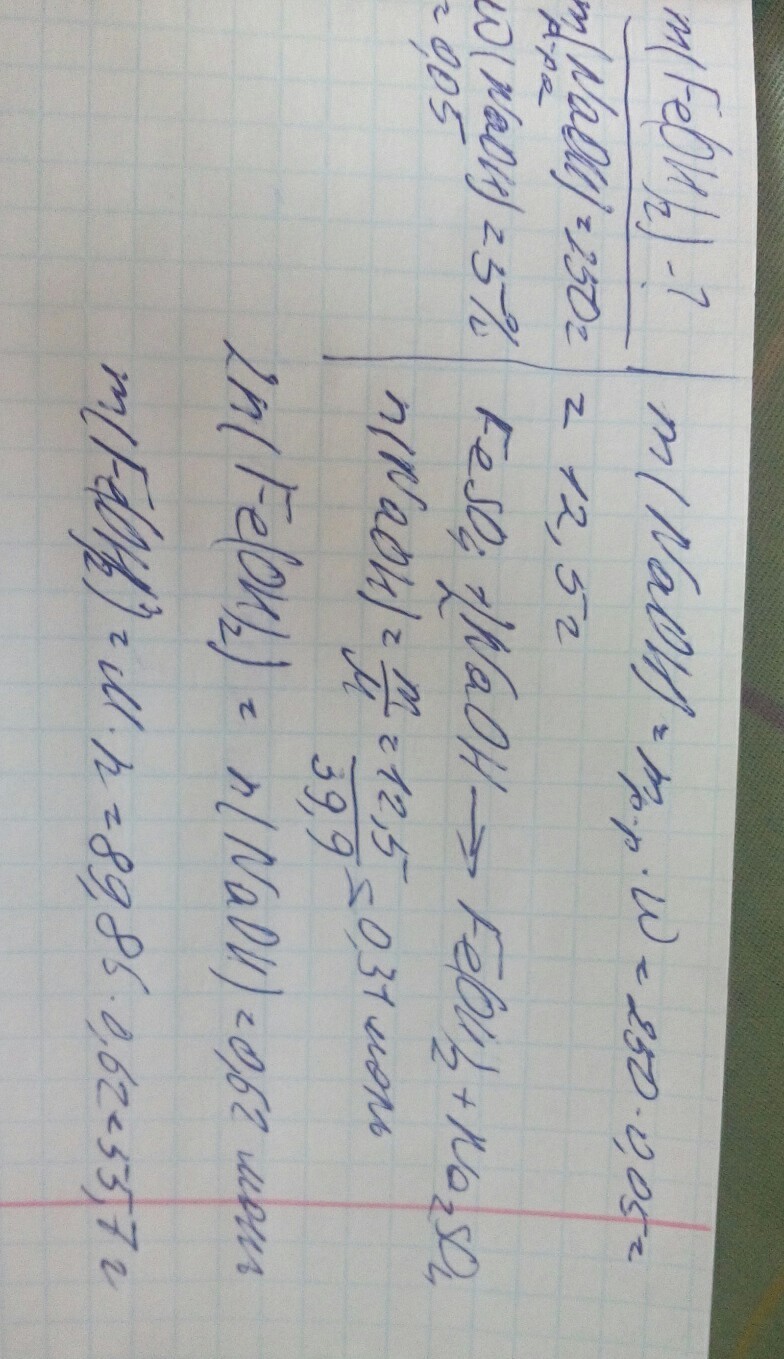 m(Fe(OH)2) - ?
m р-ра (NaOH) = 250 г
W(NaOH) = 5%
= 0,05
m(NaOH) = m р-р · W = 250 · 0,05 =
= 12,5 г
FeSO4 + 2NaOH → Fe(OH)2 + Na2SO4
n(NaOH) = m/M = 12,5/39,9 = 0,31 моль
2n(Fe(OH)2) = n(NaOH) = 0,62 моль
m(Fe(OH)2) = M · n = 89,85 · 0,62 = 55,7 г